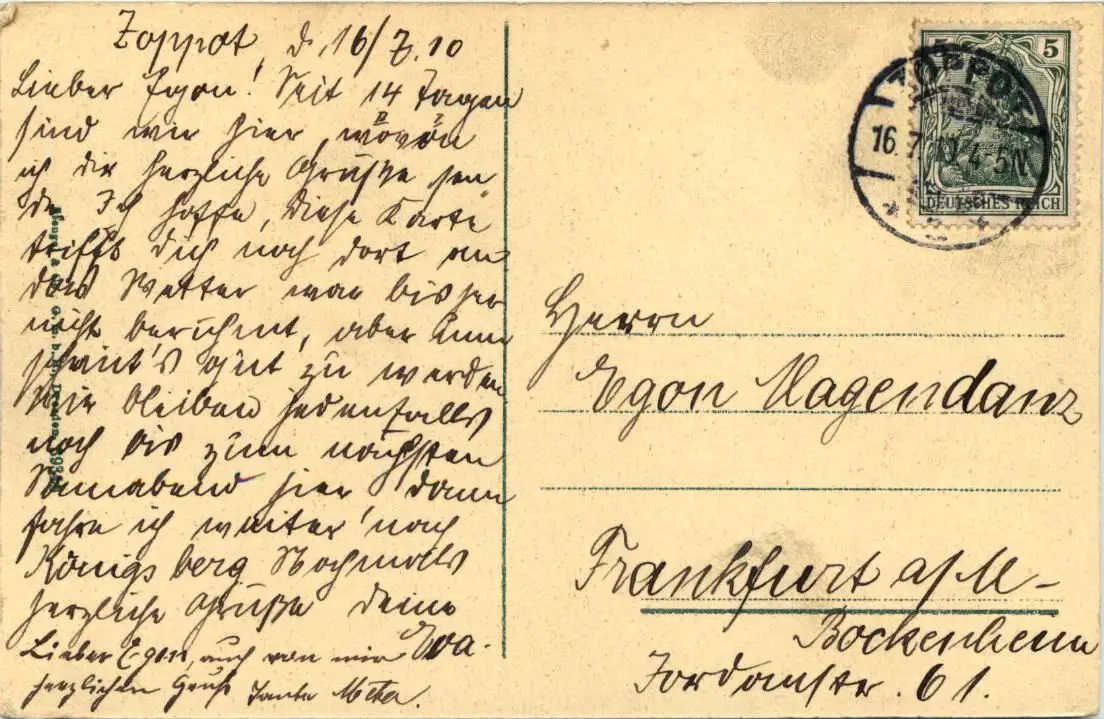 Zoppot, d, 16/7.10
Lieber Egon! Seit 14 Tagen
sind wir hier wovon
ich dir herzliche Grüße sen
de Ich hoffe, diese Karte
trifft Dich noch dort an
das Wetter war bisher
nicht berühmt, aber nun
scheint's gut zu werden
Wir bleiben jedenfalls
noch bis zum nächsten
Sonnabend hier dann
fahre ich weiter nach
Königsberg Nochmals
herzliche Grüße Deine
Eva.
Lieber Egon, auch von mir
herzlichen Gruß Tante Meta.
5 5
DEUTSCHES REICH
ZOPPOT
16.7.10 4-5N
Herrn
Egon Magendanz
Frankfurt a/M-
Bockenheim
Jordanstr. 61.